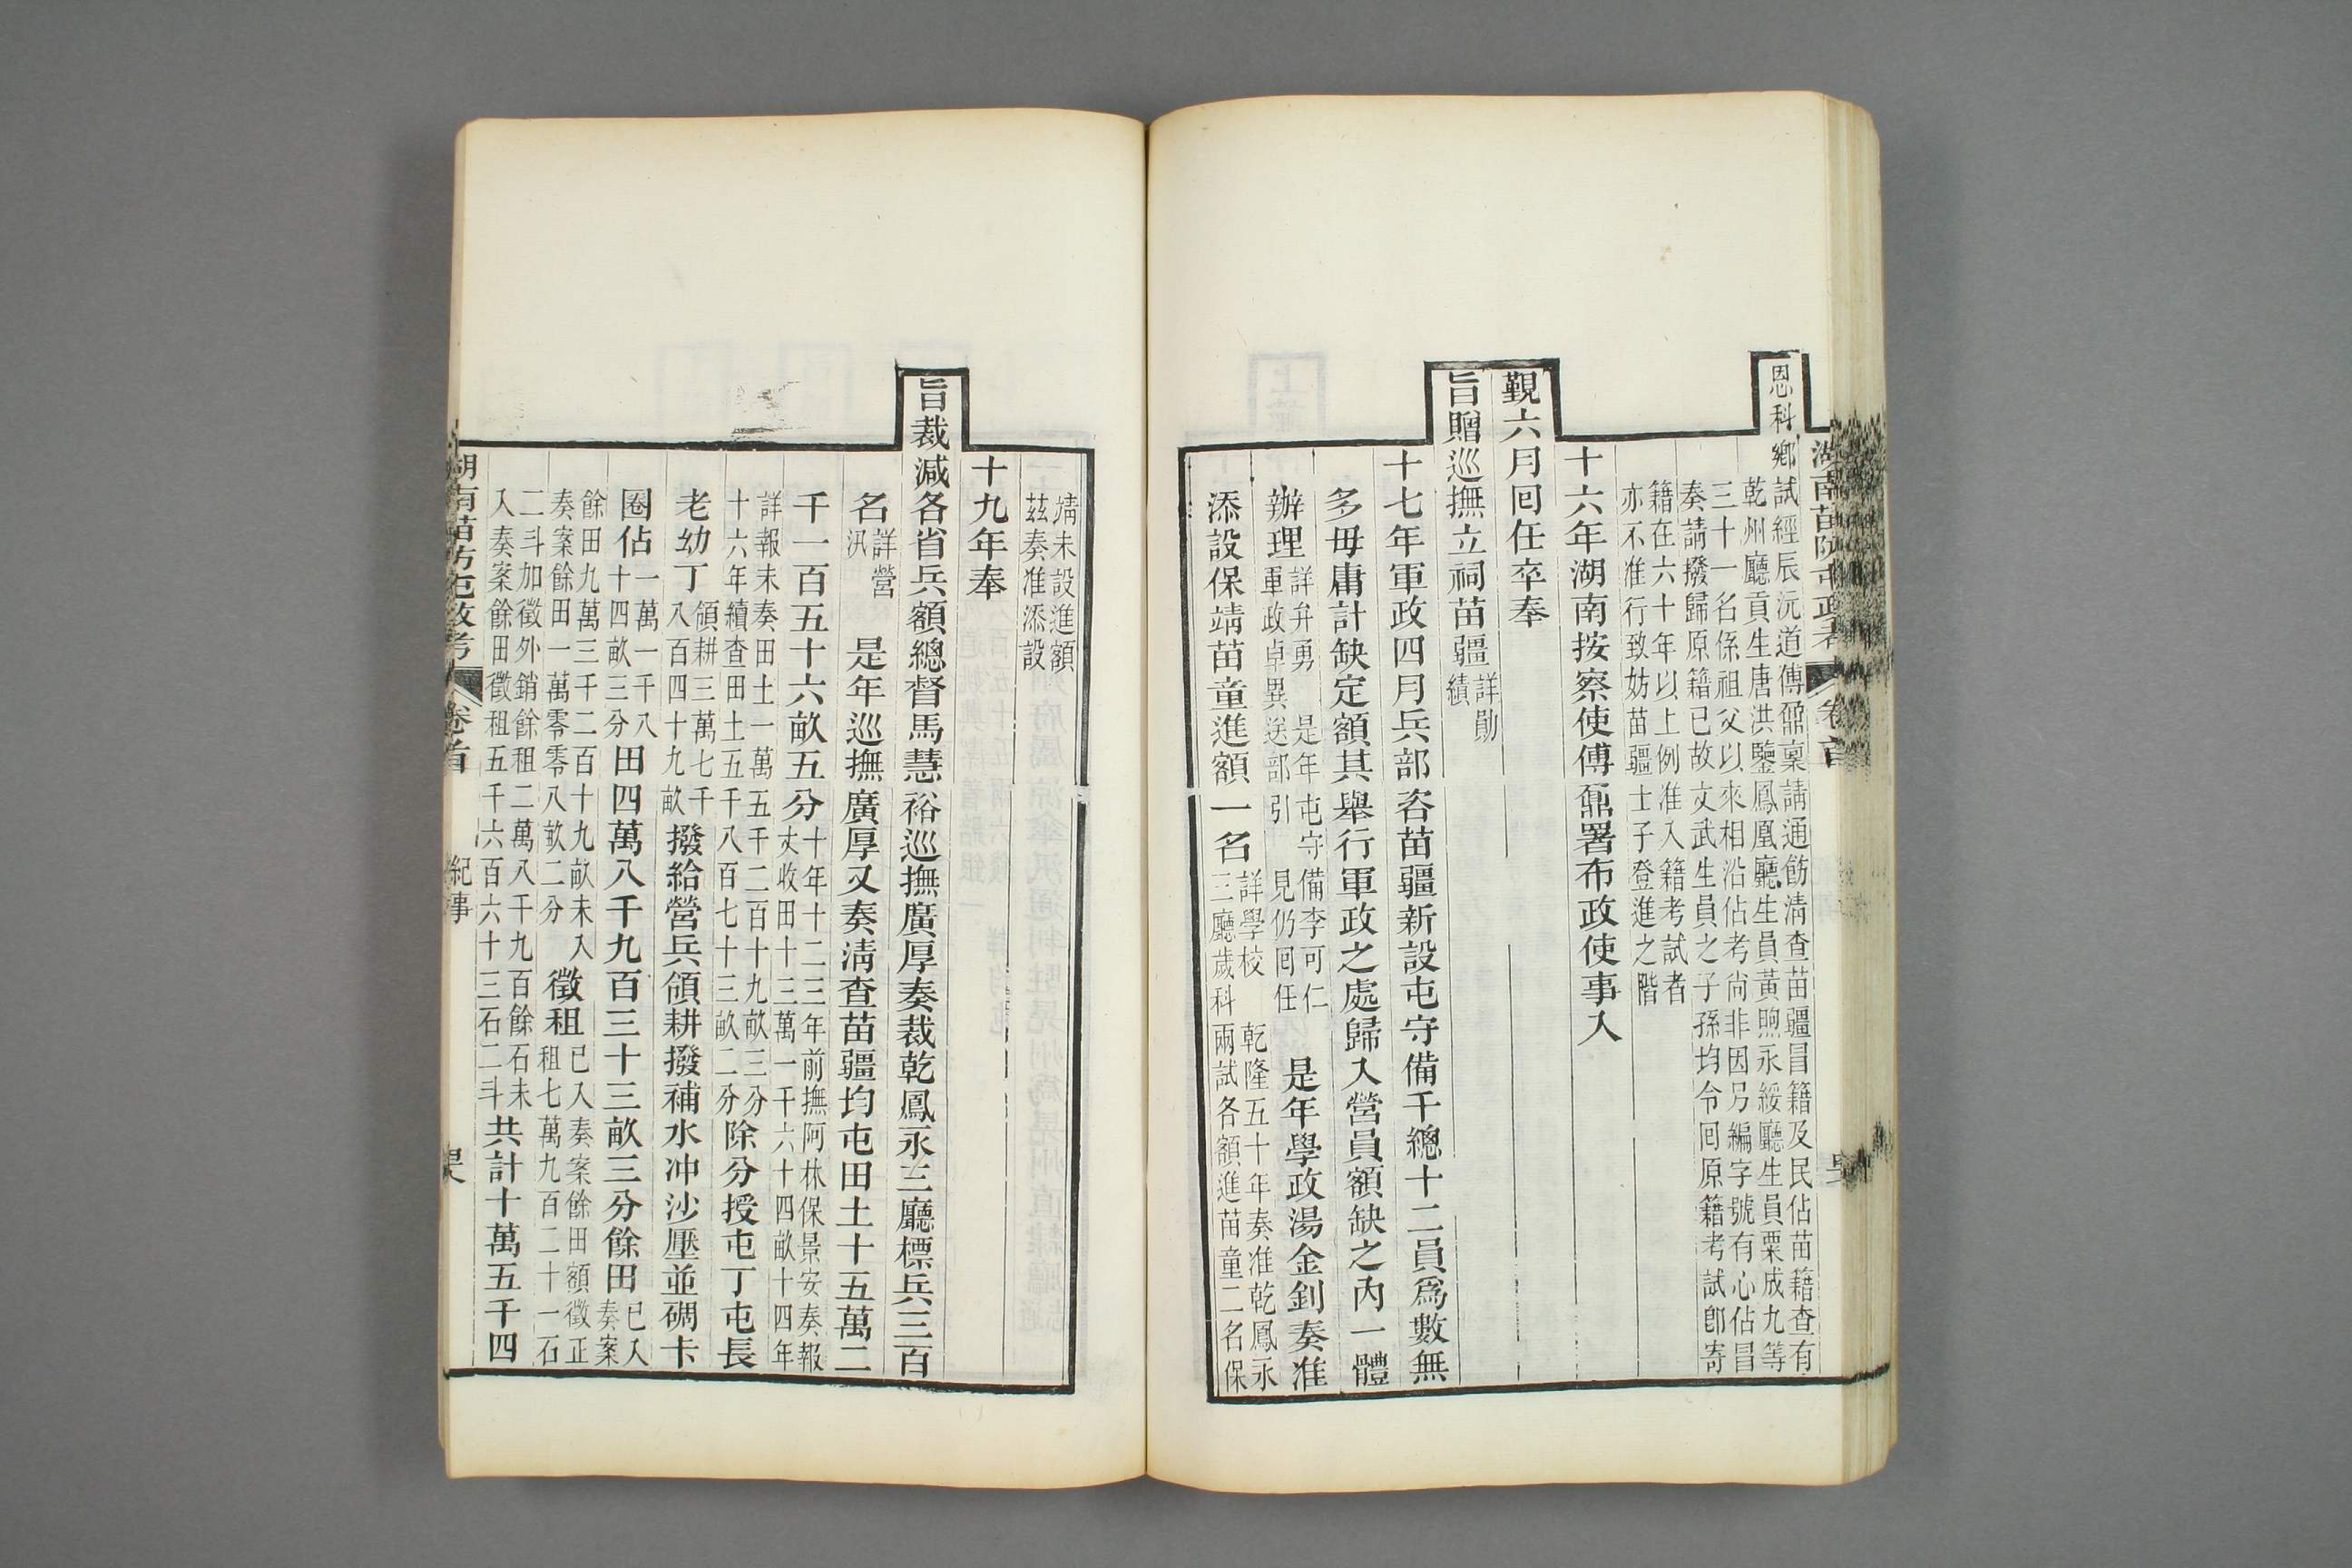 湖南苗防屯政考 卷首
恩科鄉試經辰沅道傅鼐稟請通飭清查苗疆冒籍及民佔苗籍查有
乾州廳貢生唐洪鑒鳳凰廳生員黃煦永綏廳生員粟成九等
三十一名係祖父以來相沿佔考尚非因另編字號有心佔冒
奏請撥歸原籍已故文武生員之子孫均令回原籍考試卽寄
籍在六十年以上例准入籍考試者
亦不准行致妨苗疆士子登進之階
十六年湖南按察使傅鼐署布政使事入
覲六月回任卒奉
旨贈巡撫立祠苗疆詳勛
績
十七年軍政四月兵部咨苗疆新設屯守備千總十二員爲數無
多毋庸計缺定額其舉行軍政之處歸入營員額缺之內一體
辦理詳弁勇 是年屯守備李可仁
軍政卓異送部引 見仍回任
是年學政湯金釗奏准
添設保靖苗童進額一名詳學校 乾隆五十年奏准乾鳳永
三廳歲科兩試各額進苗童二名保
靖未設進額
茲奏准添設
十九年奉
旨裁減各省兵額總督馬慧裕巡撫廣厚奏裁乾鳳永三廳標兵三百
名詳營
汛
是年巡撫廣厚又奏清查苗疆均屯田土十五萬二
千一百五十六畝五分十年十二三年前撫阿林保景安奏報
丈收田十三萬一千六十四畝十四年
詳報未奏田土一萬五千二百十九畝三分
十六年續查田土五千八百七十三畝二分
除分授屯丁屯長
老幼丁領耕三萬七千
八百四十九畝
撥給營兵領耕撥補水冲沙壓並碉卡
圈佔一萬一千八
十四畝三分
田四萬八千九百三十三畝三分餘田已入
奏案
餘田九萬三千二百十九畝未入
奏案餘田一萬零零八畝二分
徵租已入奏案餘田額徵正
租七萬九百二十一石
二斗加徵外銷餘租二萬八千九百餘石未
入奏案餘田徵租五千六百六十三石二斗
共計十萬五千四
湖南苗防屯政考 卷首 紀事